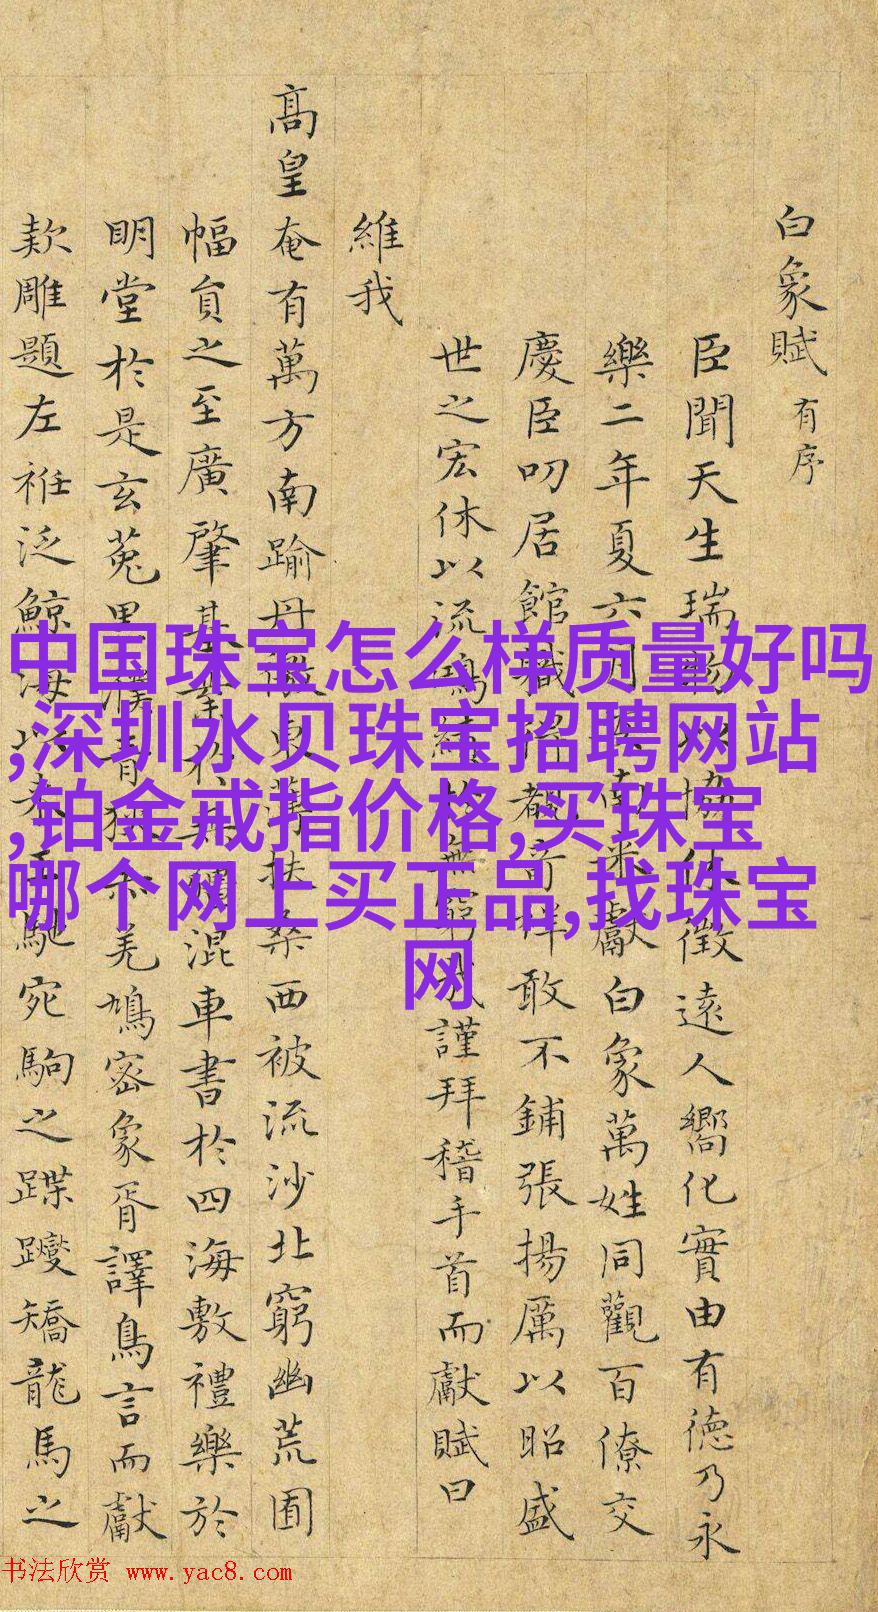 白象賦 有序
臣聞天生瑞物以協休徵遠人嚮化實由有德乃永
樂二年夏六月南來獻白象萬姓同觀百僚交
慶臣叨居館職覩竒祥敢不鋪張揚厲以昭盛
世之宏休以流鴻績於無窮哉謹拜稽手首而獻賦曰
維我
高皇奄有萬方南踰丹徼東薄扶桑西被流沙北窮幽荒囿
幅員之至廣肇基業於混車書於四海敷禮樂於
明堂於是玄菟黑濮青狄羌鳩密象胥譯鳥言而獻
款雕題左袵泛鯨海以來王馳宛駒之蹀躞矯龍馬之
中国珠宝怎么样质量好吗
,深圳水贝珠宝招聘网站
,铂金戒指价格,买珠宝
哪个网上买正品,找珠宝
网
书法欣赏 www.yac8.com